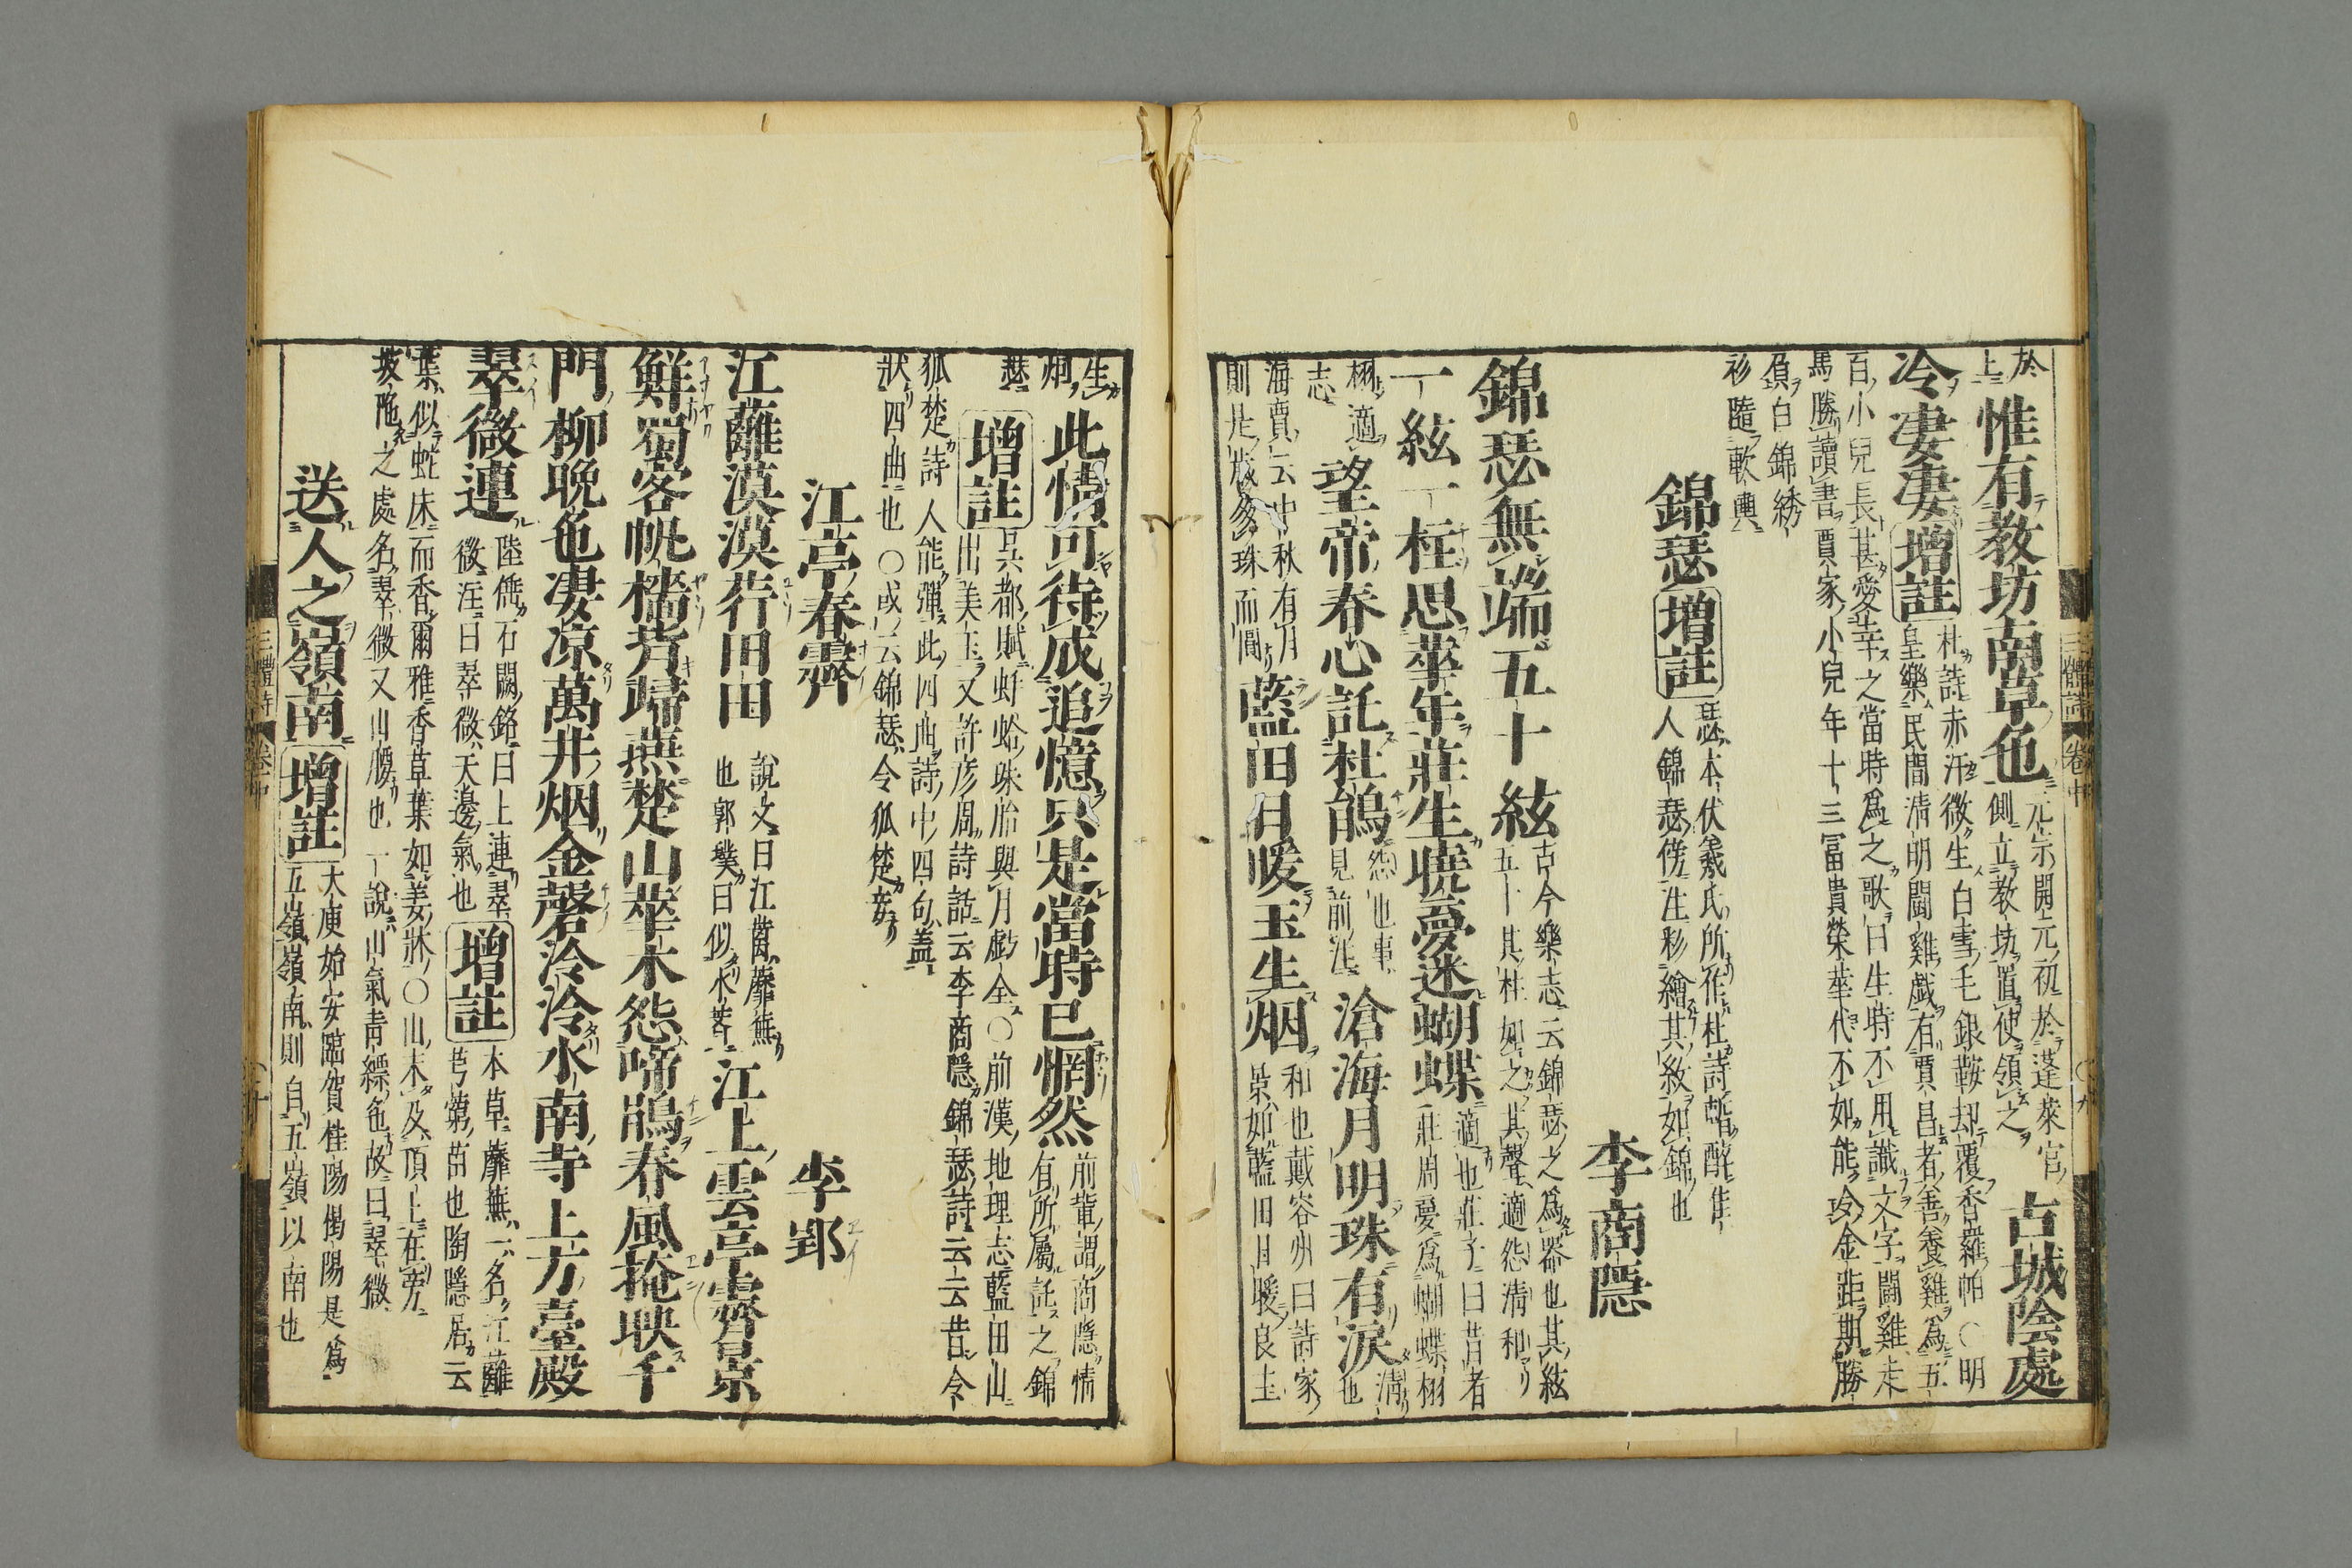 於
上
惟有教坊南草色
元宗開元初於蓬萊宮
側立教坊置使領之
古城陰處
冷凄凄
增註
杜詩赤汗微生白雪毛銀鞍却覆香羅帕○明
皇樂民間清明鬪雞戲有賈昌者善養雞為五
百小兒長甚愛幸之當時為之歌曰生時不用識文字鬪雞走
馬勝讀書賈家小兒年十三冨貴榮華代不如能令金距期勝
負白錦綉
衫隨軟輿
錦瑟
增註
瑟本伏羲氏所作杜詩暫醉佳
人錦瑟傍注彩繪其紋如錦也
李商隱
錦瑟無端五十絃
古今樂志云錦瑟之為器也其絃
五十其柱如之其聲適怨清和
一絃一柱思華年莊生曉夢迷蝴蝶
適也莊子曰昔者
莊周夢為蝴蝶栩
栩適
志
望帝春心託杜鵑
怨也事
見前注
滄海月明珠有淚
清
也
海賈云中秋有月
則是歲多珠而圓
藍田日暖玉生烟
和也戴容州曰詩家
景如藍田日暖良玉
生
烟
此情可待成追憶只是當時已惘然
前輩謂商隱情
有所屬託之錦
瑟
增註
吳都賦蚌蛤珠胎與月虧全○前漢地理志藍田山
出美玉又許彥周詩話云李商隱錦瑟詩云云昔令
狐楚詩人能彈此四曲詩中四句蓋
狀四曲也○或云錦瑟令狐楚妾
江亭春霽
李郢
江蘺漠漠荇田田
說文曰江蘺蘼蕪
也郭璞曰似水薺
江上雲亭霽景
鮮蜀客帆檣背歸燕楚山華木怨啼鵑春風掩映千
門柳晚色凄凉萬井烟金磬泠泠水南寺上方臺殿
翠微連
陸倕石闕銘曰上連翠
微注曰翠微天邊氣也
增註
本草蘼蕪一名江蘺
芎藭苗也陶隱居云
葉似蛇床而香爾雅香草葉如萎狀○山未及頂上在旁
坡陁之處名翠微又山腰也一說山氣青縹色故曰翠微
送人之嶺南
增註
大庾始安臨賀桂陽揭陽是為
五嶺嶺南則自五嶺以南也
三體詩
卷中
〇九
三體詩
卷中
〇十